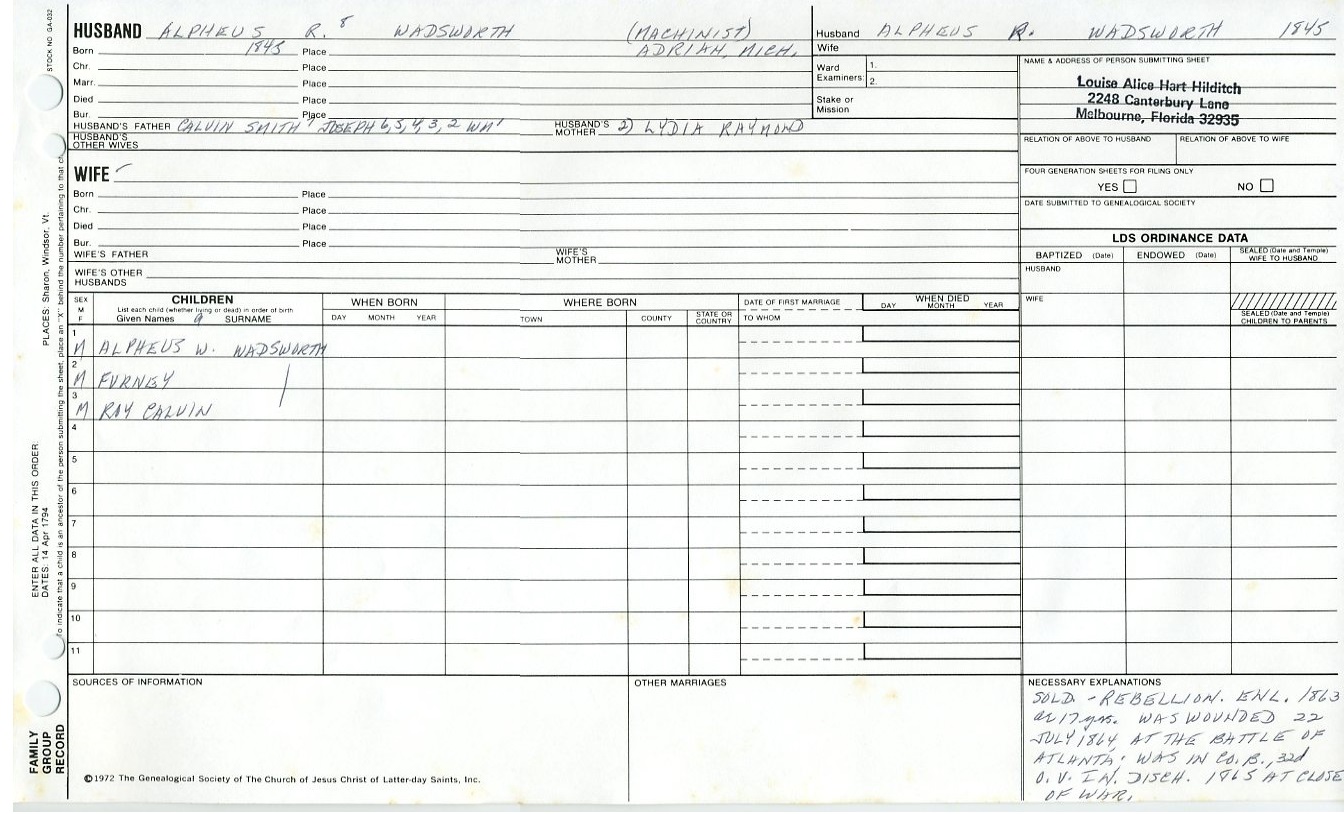 STOCK NO. GA-032
HUSBAND ALPHEUS R. 8 WADSWORTH (MACHINIST)
Born 1845 Place ADRIAN, MICH.
Chr. Place
Marr. Place
Died Place
Bur. Place
HUSBAND'S FATHER CALVIN SMITH 7 JOSEPH 6, 5, 4, 3, 2 WM 1 HUSBAND'S MOTHER 2) LYDIA RAYMOND
HUSBAND'S OTHER WIVES
Husband ALPHEUS R. WADSWORTH 1845
Wife
Ward 1.
Examiners: 2.
Stake or
Mission
NAME & ADDRESS OF PERSON SUBMITTING SHEET
Louise Alice Hart Hilditch
2248 Canterbury Lane
Melbourne, Florida 32935
RELATION OF ABOVE TO HUSBAND RELATION OF ABOVE TO WIFE
FOUR GENERATION SHEETS FOR FILING ONLY
YES NO
DATE SUBMITTED TO GENEALOGICAL SOCIETY
WIFE
Born Place
Chr. Place
Died Place
Bur. Place
WIFE'S FATHER WIFE'S MOTHER
WIFE'S OTHER HUSBANDS
LDS ORDINANCE DATA
BAPTIZED (Date) ENDOWED (Date) SEALED (Date and Temple) WIFE TO HUSBAND
HUSBAND
WIFE
SEALED (Date and Temple) CHILDREN TO PARENTS
SEX M F
CHILDREN
List each child (whether living or dead) in order of birth
Given Names 9 SURNAME
WHEN BORN
DAY MONTH YEAR
WHERE BORN
TOWN COUNTY STATE OR COUNTRY
DATE OF FIRST MARRIAGE
TO WHOM
WHEN DIED
DAY MONTH YEAR
1 M ALPHEUS W. WADSWORTH
2 M FURNEY
3 M RAY CALVIN
4
5
6
7
8
9
10
11
SOURCES OF INFORMATION
OTHER MARRIAGES
NECESSARY EXPLANATIONS
SOLD. - REBELLION. ENL. 1863
at 17 yrs. WAS WOUNDED 22
JULY 1864, AT THE BATTLE OF
ATLANTA; WAS IN CO. B., 32d
O. V. IN. DISCH. 1865 AT CLOSE
OF WAR.
©1972 The Genealogical Society of The Church of Jesus Christ of Latter-day Saints, Inc.
FAMILY
GROUP
RECORD
ENTER ALL DATA IN THIS ORDER:
DATES: 14 Apr 1794
PLACES: Sharon, Windsor, Vt.
To indicate that a child is an ancestor of the person submitting the sheet, place an "X" behind the number pertaining to that